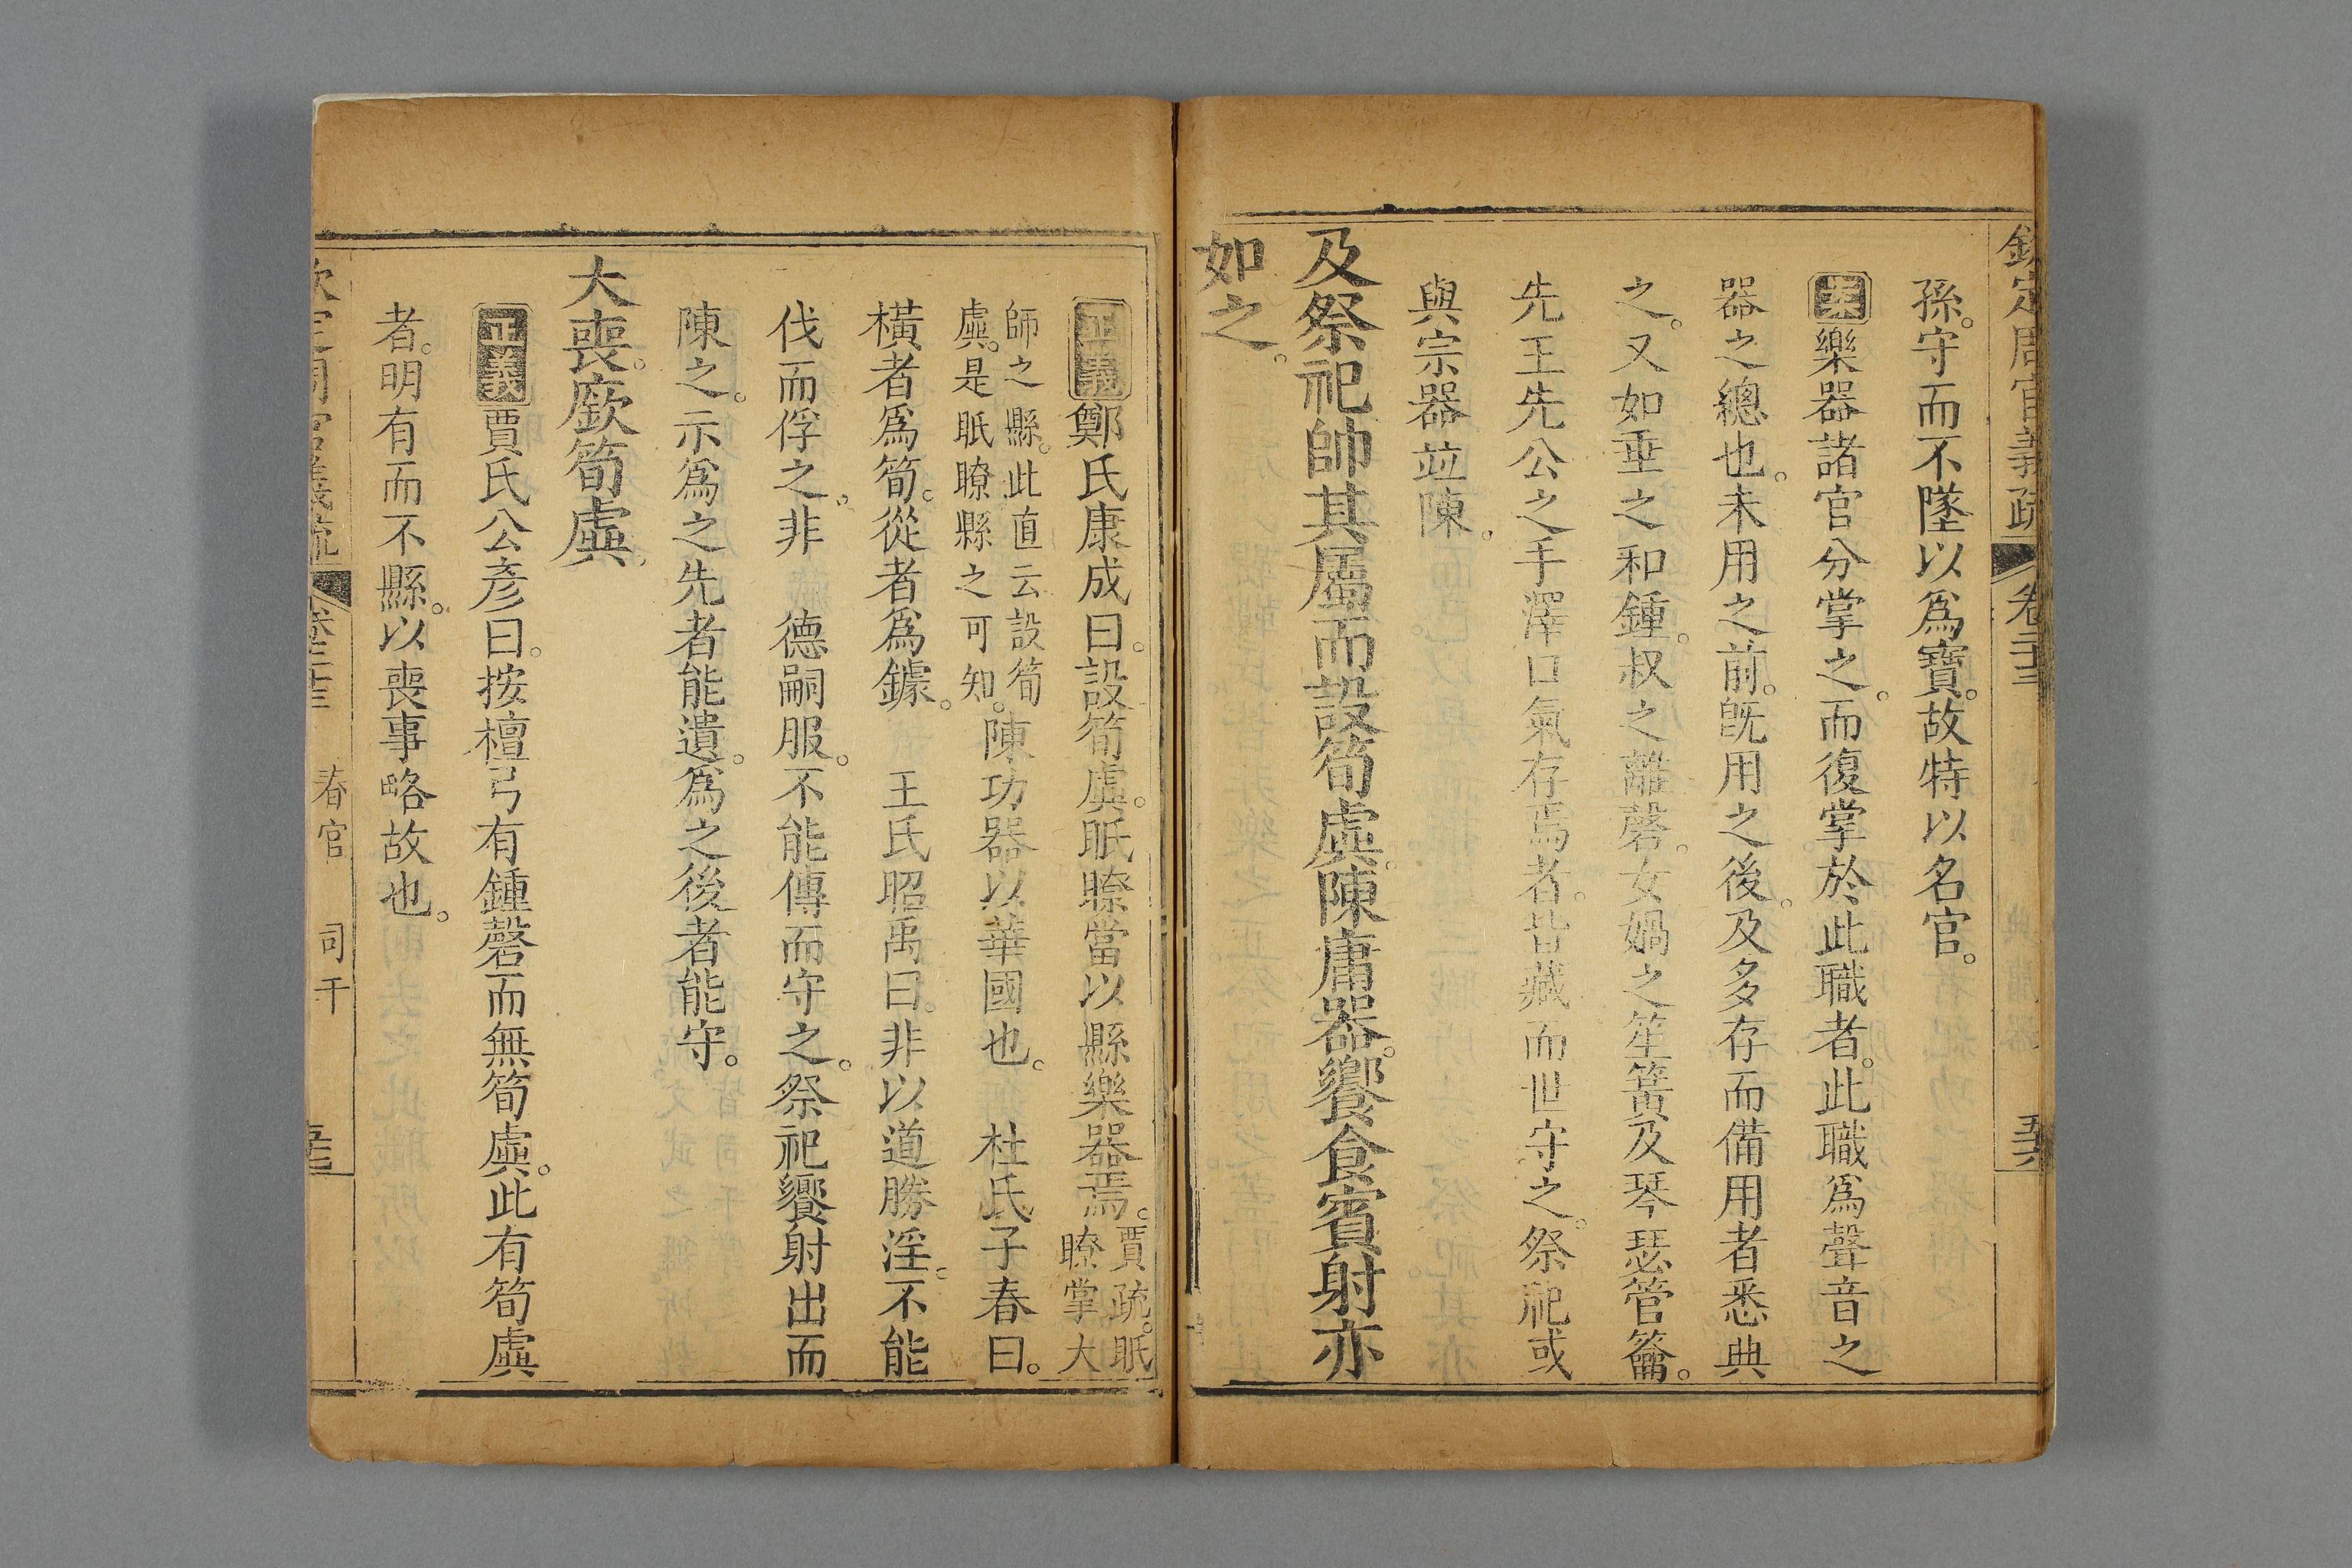 欽定周官義疏 卷二十三
孫。守而不墜以爲寶。故特以名官。
案樂器諸官分掌之。而復掌於此職者。此職爲聲音之
器之總也。未用之前。旣用之後。及多存而備用者悉典
之。又如垂之和鍾。叔之離磬。女媧之笙簧及琴瑟管籥。
先王先公之手澤口氣存焉者。皆藏而世守之。祭祀或
與宗器竝陳。
及祭祀帥其屬而設筍虡。陳庸器。饗食賓射亦
如之。
正義鄭氏康成曰。設筍虡。眡瞭當以縣樂器焉。賈疏。眡瞭掌大
師之縣。此直云設筍虡。是眡瞭縣之可知。陳功器以華國也。 杜氏子春曰。
橫者爲筍。從者爲鐻。 王氏昭禹曰。非以道勝淫。不能
伐而俘之。非 德嗣服。不能傳而守之。祭祀饗射出而
陳之。示爲之先者能遺。爲之後者能守。
大喪。廞筍虡。
正義賈氏公彥曰。按檀弓有鍾磬而無筍虡。此有筍虡
者。明有而不縣。以喪事略故也。
欽定周官義疏 卷二十三 春官 司干